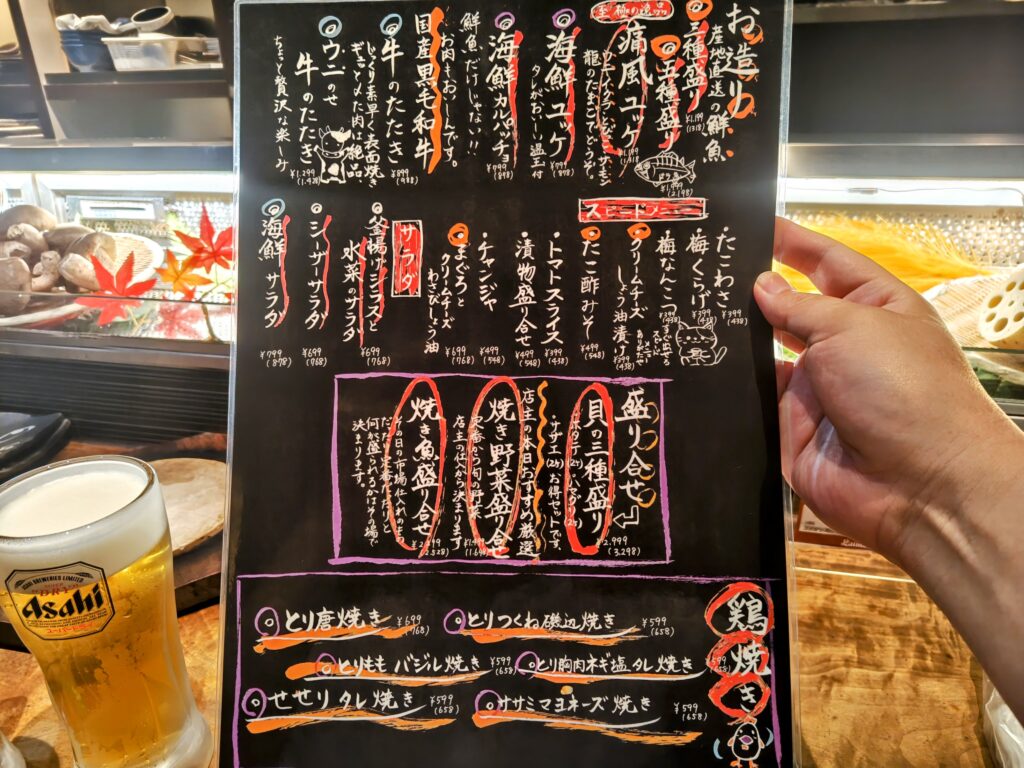 お造り
産地直送の鮮魚
三種盛り
¥1,199
(1318)
五種盛り
¥1,999
(2,198)
痛風ユッケ
龍のたまごでどうぞ。
海鮮ユッケ
¥799
(878)
海鮮カルパッチョ
¥799
(878)
鮮魚だけじゃない!!
お肉もおいしーんです。
国産黒毛和牛
牛のたたき
¥899
(988)
じっくり素早く表面焼き
ギュっと〆た肉は絶品、
ウニのせ
牛のたたき
¥1,299
(1,428)
ちょと贅沢な楽しみ
スピードメニュー
たこわさ
¥399
(438)
梅くらげ
¥399
(438)
梅なんこつ
¥399
(438)
クリームチーズ
しょう油漬け
¥399
(438)
たこ酢みそ
¥499
(548)
トマトスライス
¥399
(438)
漬物盛り合せ
¥499
(548)
チャンジャ
¥499
(548)
まぐろと
クリームチーズ
わさびしょう油
¥699
(768)
サラダ
釜揚げシラスと
水菜のサラダ
¥699
(768)
シーザーサラダ
¥699
(768)
海鮮サラダ
¥799
(878)
盛り合せ
貝の三種盛り
¥2,999
(3,298)
サザエ(2ケ)お得セットです。
店主の本日おすすめ厳選
焼き野菜盛り合せ
定番から旬の野菜
店主の仕入から決まります
焼き魚盛り合せ
¥2,299
(2,528)
今日の市場仕入れのよう
だったり定番だったりと
何が盛られてるかはその場で
決まります。
鶏焼き
とり唐焼き ¥699
(768)
とりつくね磯辺焼き ¥599
(658)
とりもも バジル焼き ¥599
(658)
とり胸肉ネギ塩タレ焼き
せせりタレ焼き ¥599
(658)
ササミマヨネーズ焼き ¥599
(658)
ASAHI BREWERIES LIMITED
Asahi
スーパードライ